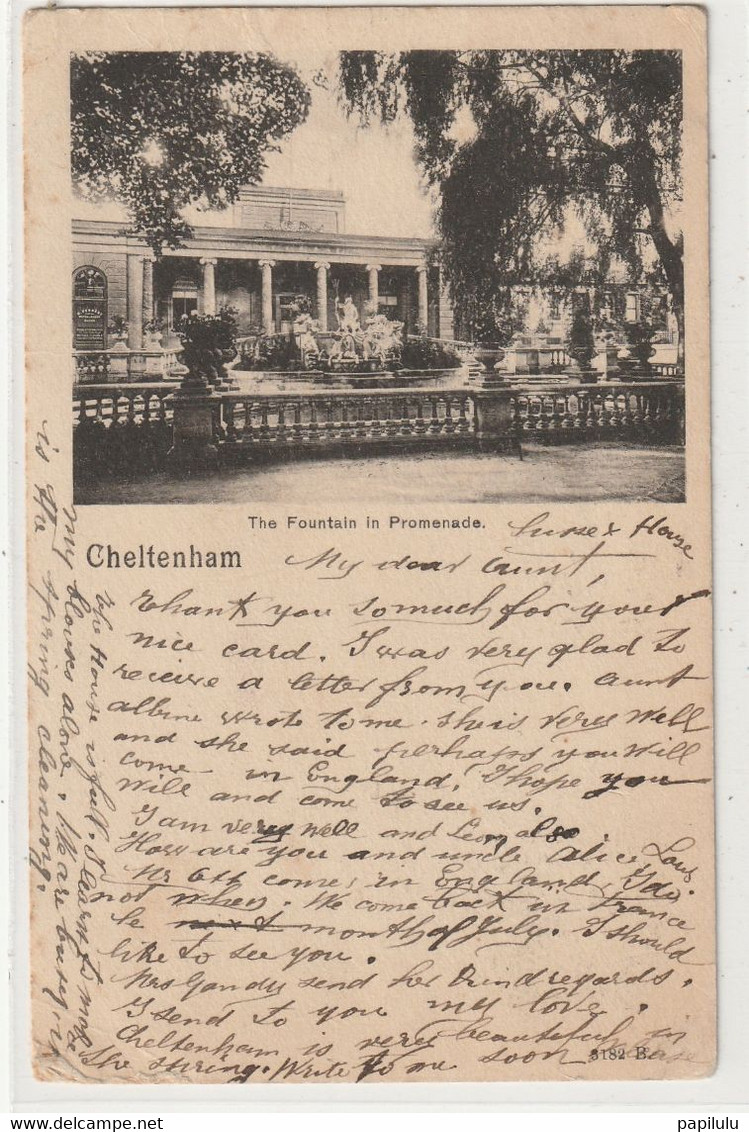 The Fountain in Promenade.
Cheltenham
Sussex House
My dear aunt,
Thank you so much for your
nice card. I was very glad to
receive a letter from you. aunt
albine wrote to me. she is very well
and she said perhaps you will
come in England. I hope you
will and come to see us.
I am very well and Leon also
How are you and uncle Alice, Louis
come in England, I do
not when. We come back in France
le next month of July. I should
like to see you.
Mrs Gandy send her kind regards.
I send to you my love.
Cheltenham is very beautiful in
the spring. Write to me soon please
3182 B.
the House is full. I learn to make
my blouses alone. We are busy, it
is the spring cleaning.
papilulu